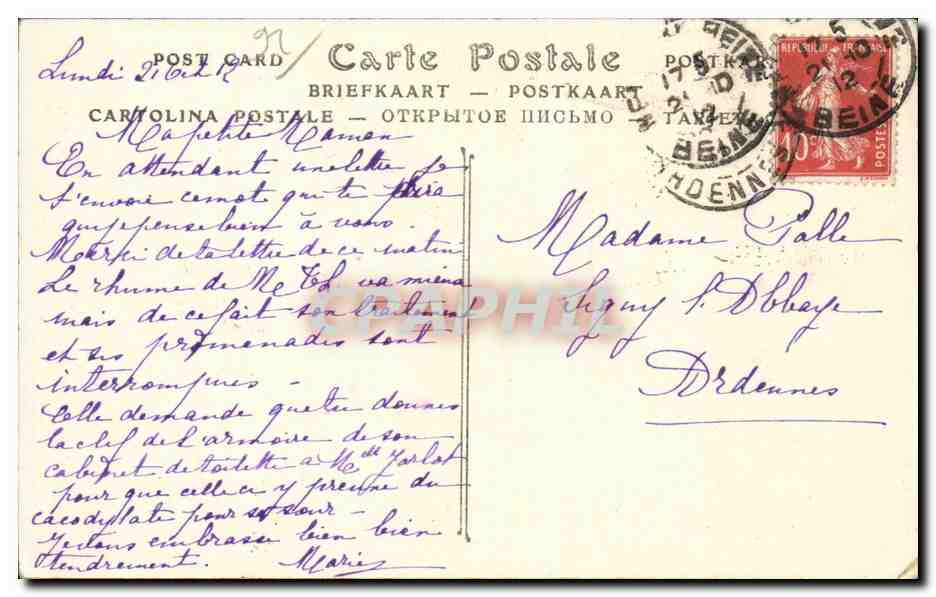 POST CARD Carte Postale POSTKAR
BRIEFKAART — POSTKAART
CARTOLINA POSTALE — ОТКРЫТОЕ ПИСЬМО TARJET
Lundi 21 Oct 12
Ma petite Maman
En attendant une lettre je
t'envoie ce mot qui te dira
que je pense bien à vous.
Merci de ta lettre de ce matin
Le rhume de M Th. va mieux
mais de ce fait son traitement
et ses promenades sont
interrompues —
Elle demande que tu donnes
la clef de l'armoire de son
cabinet de toilette à Melle Jorlot
pour que celle ci y prenne du
cacodylate pour sa sœur —
Je vous embrasse bien bien
tendrement. Marie
Madame Palle
Signy l'Abbaye
Ardennes
REPUBLIQUE FRANÇAISE
10c
POSTES
17 5
21 10
12
BEINE
ARDENNES
CPAPHIL